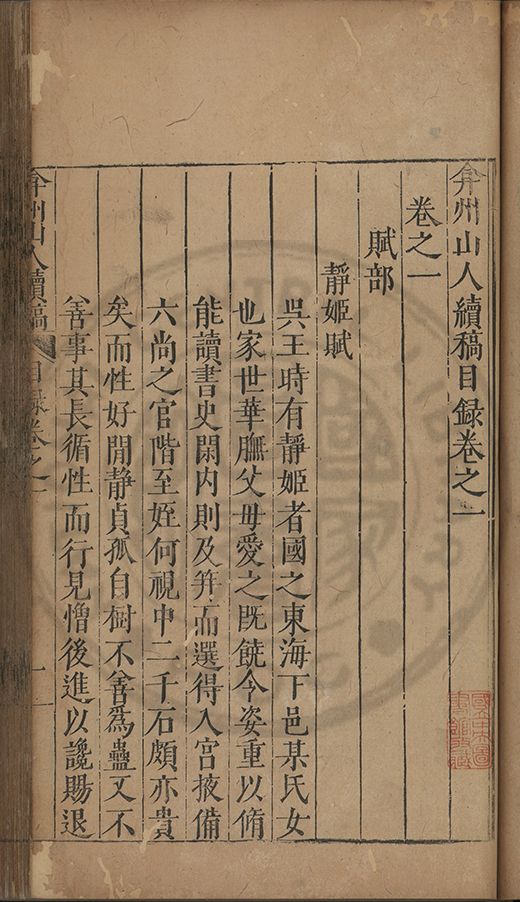 弇州山人續稿目録卷之一
卷之一
賦部
靜姬賦
吳王時有靜姬者國之東海下邑某氏女
也家世華膴父母愛之既饒令姿重以脩
能讀書史閑内則及笄而選得入宮掖備
六尚之官階至娙何視中二千石頗亦貴
矣而性好閒靜貞孤自樹不善爲蠱又不
善事其長循性而行見憎後進以讒賜退
弇州山人續稿 目録卷之一 一